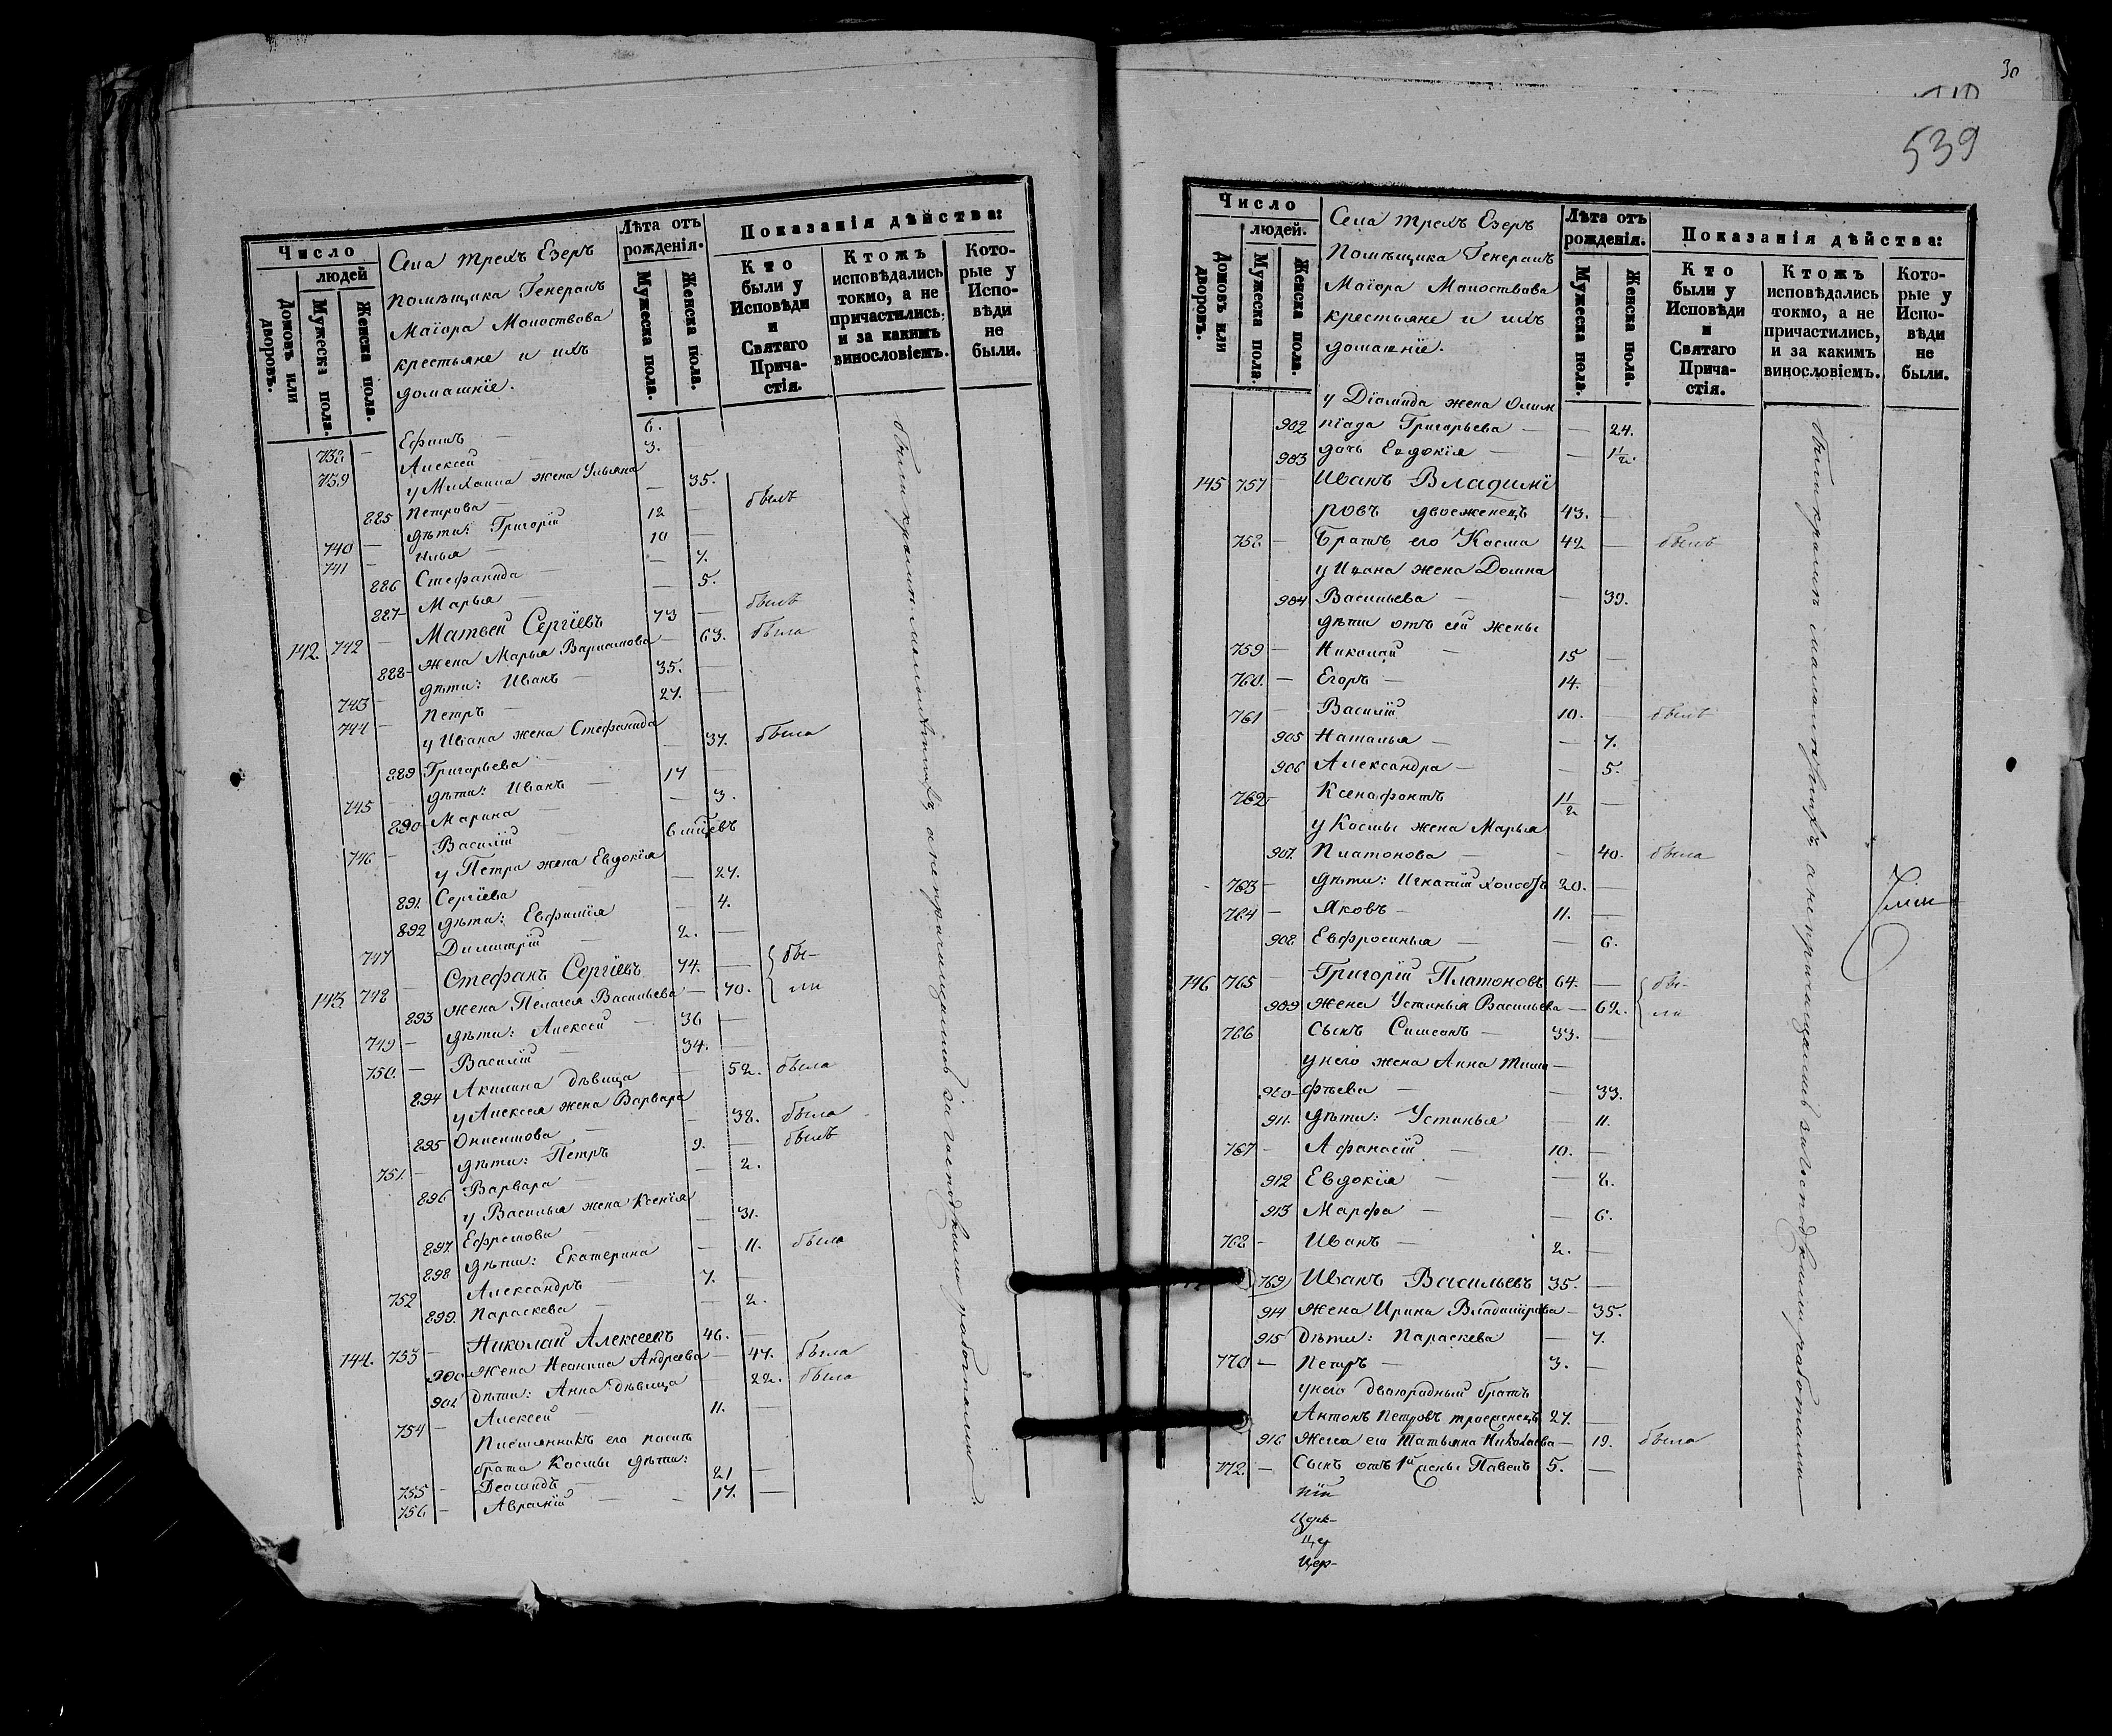 30
539
Число
людей
Домовъ или дворовъ.
Мужеска пола.
Женска пола.
Села трехъ Езеръ
Помѣщика Генералъ
Маіора Молоствова
крестьяне и ихъ
домашніе.
Лѣта отъ рожденія.
Мужеска пола.
Женска пола.
Показанія дѣйства:
Кто были у Исповѣди и Святаго Причастія.
Ктожъ исповѣдались токмо, а не причастились, и за какимъ винословіемъ.
Которые у Исповѣди не были.
738 — Ефимъ — 6.
739 Алексей — 3. —
у Михаила жена Ульяна
885 Петрова — — 35.
740 — дѣти: Григорій 12 — былъ
741 — Илья — 10 —
886 Стефанида — — 7.
887 Марья — — 5.
142. 742 — Матвей Сергіевъ 73 — былъ
888 жена Марья Варламова — 63. была
743 — дѣти: Иванъ — 35. —
744 — Петръ — 27. —
у Ивана жена Стефанида
889 Григорьева — — 37. была
745 — дѣти: Иванъ — 17 —
890 Марина — — 3.
746 — Василій — 6 мцевъ
у Петра жена Евдокія
891 Сергіева — — 27.
892 дѣти: Евфимія — 4.
747 Димитрій — 2. —
143. 748 — Стефанъ Сергіевъ 74. — бы-
893 жена Пелагея Васильева — 70. ли
749 — дѣти: Алексей — 36 —
750. — Василій — 34. —
894 Акилина дѣвица — 52. была
у Алексея жена Варвара
895 Онисимова — — 38. была
751. — дѣти: Петръ 9. — былъ
896 Варвара — — 2.
у Василья жена Ксенія
897 Ефремова — — 31.
898 дѣти: Екатерина — 11. была
752 Александръ — 7. —
899 Параскева — — 2.
144. 753 — Николай Алексеевъ 46. —
900 жена Неонила Андреева — 47. была
901 дѣти: Анна дѣвица — 22. была
754 — Алексей — 11. —
Племянники его
брата Космы дѣти:
755 — Деомидъ — 21 —
756 — — 17. —
были кромѣ малолѣтнихъ, а не причащались за господскими работами.
Число
людей.
Домовъ или дворовъ.
Мужеска пола.
Женска пола.
Села трехъ Езеръ
Помѣщика Генералъ
Маіора Молоствова
крестьяне и ихъ
домашніе.
Лѣта отъ рожденія.
Мужеска пола.
Женска пола.
Показанія дѣйства:
Кто были у Исповѣди и Святаго Причастія.
Ктожъ исповѣдались токмо, а не причастились, и за какимъ винословіемъ.
Которые у Исповѣди не были.
у Діомида жена Олим
902 піада Григорьева — — 24.
903 дочь Евдокія — — 1 1/2.
145 757 — Иванъ Владимі
ровъ двоеженецъ 43. —
758 — Братъ его Косма 42 — былъ
у Ивана жена Домна
904 Васильева — — 39.
дѣти отъ сей жены
759 — Николай — 15 —
760. — Егоръ — 14.
761 — Василій 10. — былъ
905 Наталья — — 7.
906 Александра — — 5.
762 — Ксенофонтъ 1 1/2 —
у Космы жена Марья
907. Платонова — — 40. была
763 — дѣти: Игнатій холостъ 20. —
764 — Яковъ — 11. —
908 Евфросинья — — 6.
146 765 — Григорій Платоновъ 64. — бы-
909 жена Устинья Васильева — 62. ли
766 сынъ Симеонъ — 33. —
у него жена Анна Тимо —
910 фѣева — — 33.
911. дѣти: Устинья — 11.
767 — Афанасій — 10. —
912 Евдокія — — 8.
913 Марфа — — 6.
768 — Иванъ — 2. —
769 Иванъ Васильевъ 35. —
914 жена Ирина Владимірова — 35.
915 Дѣти: Параскева — 7.
770 — Петръ — 3. —
у него двоюродный братъ
Антонъ Петровъ троеженецъ 27. —
916 жена его Татьяна Николаева — 19. была
772. — Сынъ отъ 1й жены Павелъ 5. —
были кромѣ малолѣтнихъ, а не причащались за господскими работами